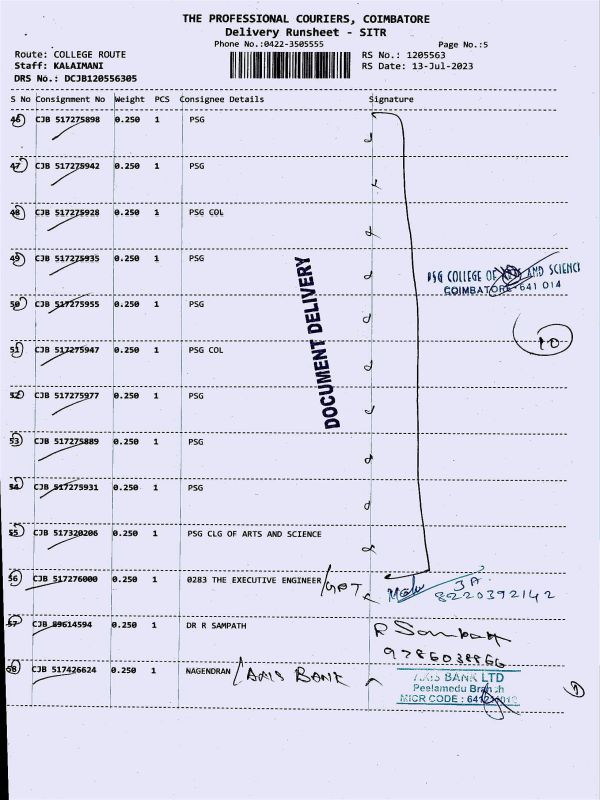 THE PROFESSIONAL COURIERS, COIMBATORE
Delivery Runsheet - SITR
Phone No.:0422-3505555 Page No.:5
Route: COLLEGE ROUTE RS No.: 1205563
Staff: KALAIMANI RS Date: 13-Jul-2023
DRS No.: DCJB120556305
S No Consignment No Weight PCS Consignee Details Signature
46 CJB 517275898 0.250 1 PSG
47 CJB 517275942 0.250 1 PSG
48 CJB 517275928 0.250 1 PSG COL
49 CJB 517275935 0.250 1 PSG
PSG COLLEGE OF ARTS AND SCIENCE
COIMBATORE-641 014
DOCUMENT DELIVERY
50 CJB 517275955 0.250 1 PSG
10
51 CJB 517275947 0.250 1 PSG COL
52 CJB 517275977 0.250 1 PSG
53 CJB 517275889 0.250 1 PSG
54 CJB 517275931 0.250 1 PSG
55 CJB 517320206 0.250 1 PSG CLG OF ARTS AND SCIENCE
56 CJB 517276000 0.250 1 0283 THE EXECUTIVE ENGINEER /GPT JA
8220392142
57 CJB 89614594 0.250 1 DR R SAMPATH R Sampath
58 CJB 517426624 0.250 1 NAGENDRAN /AXIS BANK
AXIS BANK LTD
Peelamedu Branch
MICR CODE :